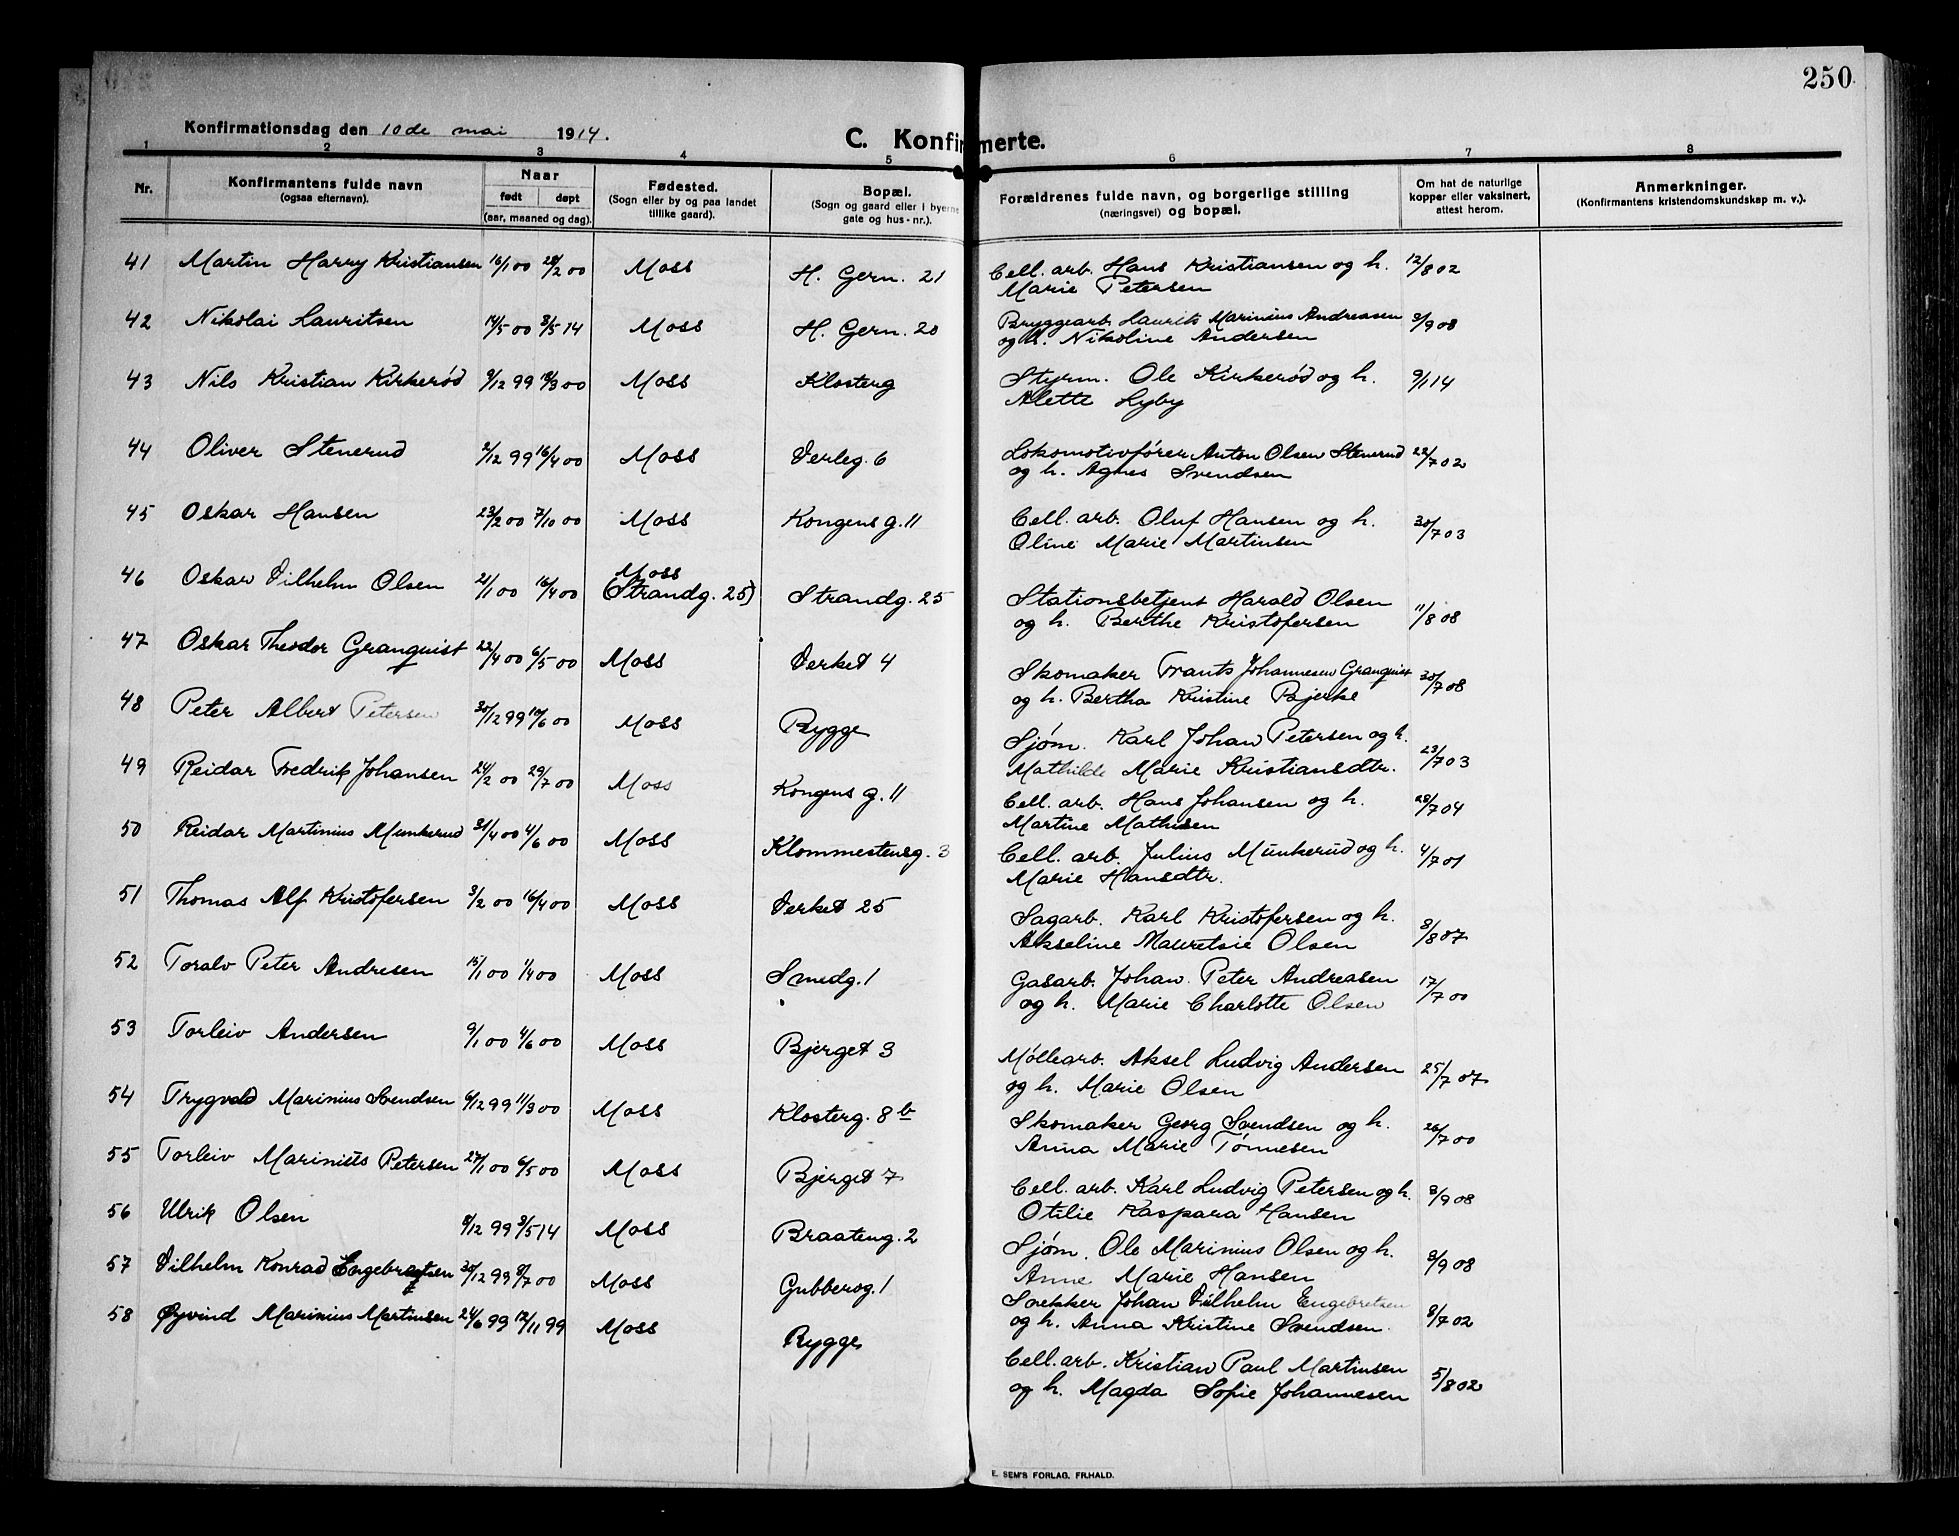 250
Konfirmationsdag den 10de mai 1914.
C. Konfirmerte.
1 2 3 4 5 6 7 8
Nr.
Konfirmantens fulde navn
(ogsaa efternavn).
Naar
født døpt
(aar, maaned og dag).
Fødested.
(Sogn eller by og paa landet
tillike gaard).
Bopæl.
(Sogn og gaard eller i byerne
gate og hus-nr.).
Forældrenes fulde navn, og borgerlige stilling
(næringsvei) og bopæl.
Om hat de naturlige
kopper eller vaksinert,
attest herom.
Anmerkninger.
(Konfirmantens kristendomskundskap m. v.).
41 Martin Harry Kristiansen 16/1 00 28/2 00 Moss H. Gern. 21 Cell. arb. Hans Kristiansen og h. 12/8 02
Marie Petersen
42 Nikolai Lauritsen 14/5 00 3/5 14 Moss H. Gern. 20 Bryggearb. Laurits Marinius Andreasen 3/9 08
og h. Nikoline Andersen
43 Nils Kristian Kirkerød 9/12 99 18/3 00 Moss Klosterg Styrm. Ole Kirkerød og h. 9/1 14
Alette Lyby
44 Oliver Stenerud 2/12 99 16/4 00 Moss Verleg. 6 Lokomotivfører Anton Olsen Stenerud 22/7 02
og h. Agnes Svendsen
45 Oskar Hansen 23/2 00 7/10 00 Moss Kongens g. 11 Cell. arb. Oluf Hansen og h. 30/7 03
Oline Marie Martinsen
46 Oskar Vilhelm Olsen 21/1 00 16/4 00 Moss
(Strandg. 25) Strandg. 25 Stationsbetjent Harald Olsen
og h. Berthe Kristofersen 11/8 08
47 Oskar Theodor Granquist 22/4 00 6/5 00 Moss Verket 4 Skomaker Frants Johannesen Granquist 30/7 08
og h. Bertha Kristine Bjerke
48 Peter Albert Petersen 30/12 99 10/6 00 Moss Rygge Sjøm. Karl Johan Petersen og h. 23/7 03
Mathilde Marie Kristiansdtr.
49 Reidar Fredrik Johansen 24/2 00 29/7 00 Moss Kongens g. 11 Cell. arb. Hans Johansen og h. 28/7 04
Martine Mathisen
50 Reidar Martinius Munkerud 31/4 00 4/6 00 Moss Klommestensg. 3 Cell. arb. Julius Munkerud og h. 4/7 01
Marie Hansdtr.
51 Thomas Alf Kristofersen 3/2 00 16/4 00 Moss Verket 25 Sagarb. Karl Kristofersen og h. 8/8 07
Akseline Mauretsie Olsen
52 Toralv Peter Andresen 15/1 00 1/4 00 Moss Smedg. 1 Gasarb. Johan Peter Andreasen 17/7 00
og h. Marie Charlotte Olsen
53 Torleiv Andersen 9/1 00 4/6 00 Moss Bjerget 3 Møllearb. Aksel Ludvig Andersen 25/7 07
og h. Marie Olsen
54 Trygvald Marinius Svendsen 6/12 99 11/3 00 Moss Klosterg. 8 b Skomaker Georg Svendsen og h. 26/7 00
Anna Marie Tønnesen
55 Torleiv Marinius Petersen 27/1 00 6/5 00 Moss Bjerget 7 Cell. arb. Karl Ludvig Petersen og h. 3/9 08
Otilie Kaspara Hansen
56 Ulrik Olsen 8/12 99 3/5 14 Moss Braateng. 2 Sjøm. Ole Marinius Olsen og h. 3/9 08
Anne Marie Hansen
57 Vilhelm Konrad Engebretsen 30/12 99 8/7 00 Moss Gubberog. 1 Snekker Johan Vilhelm Engebretsen 8/7 02
og h. Anna Kristine Svendsen.
58 Øyvind Marinius Martinsen 24/6 99 12/11 99 Moss Rygge Cell. arb. Kristian Paul Martinsen 5/8 02
og h. Magda Sofie Johannesen
E. SEM'S FORLAG, FR.HALD.